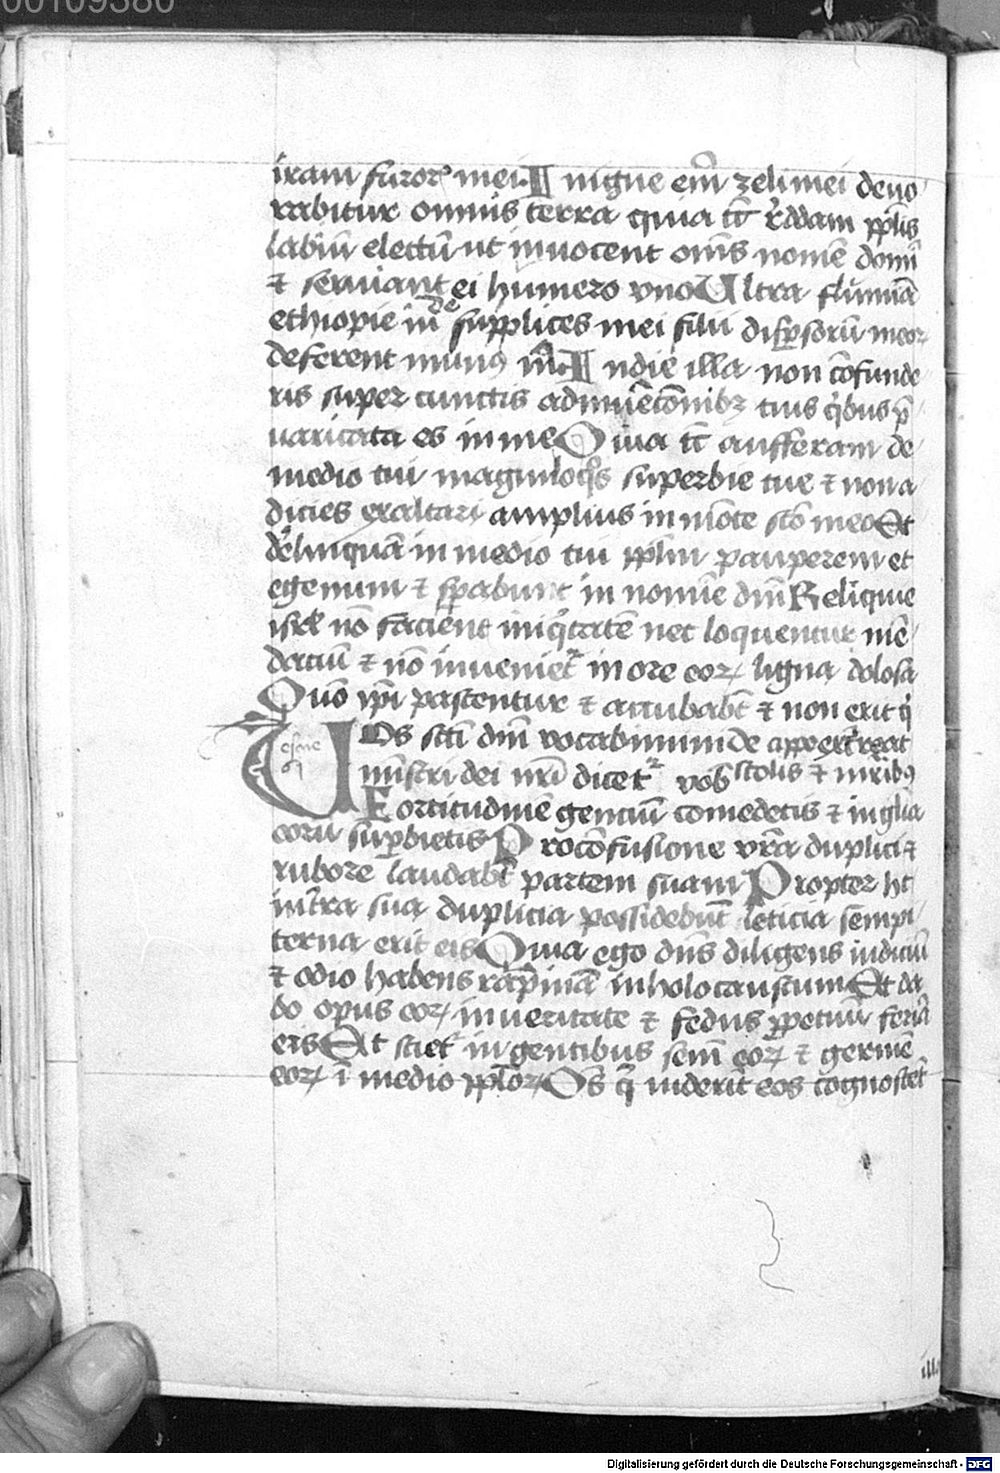 00109380
iram furor̉ mei. In igne em̄ zeli mei deuo
rabitur omnis terra quia tc̄ r̉ddam ppl̄is
labiū electū ut inuocent om̄s nomē domī
⁊ seruiant ei humero vno Ultra flumīa
ethiopie in̄de supplices mei filii disp̱sorū meoꝝ
deferent munꝰ m̄. In die illa non cōfunde
ris super cunctis adinuēcōnibꝫ tuis q̉bus p̄
uaricata es in me Quia tc̄ aufferam de
medio tui magniloq̉s superbie tue ⁊ non a
dicies exaltari amplius in mōte scō meo Et
d̉elinquā in medio tui ppl̄m pauperem et
egenum ⁊ sp̱abunt in nomīe dn̄i Reliquie
isr̄l nō facient iniq̉tatē nec loquentur mē
daciū ⁊ nō inueniet᷑ in ore eoꝝ ligna dolosa
Quō ip̄i pascentur ⁊ accubab̄t ⁊ non erit q̉
Uos scī dn̄i vocabimini de apoext̉reat
esme
ministri dei nr̄i dicet᷑ vob̄ stolis ⁊ mr̄ibꝰ
Fortitudinē genciū comedetis ⁊ in gl̄ia
eorū sup̱bietis Pro cōfusione vr̄a duplici ⁊
rubore laudab̄t partem suam Propter hc̄
in t̉ra sua duplicia possidebūt leticia sempi
terna erit eis Quia ego dn̄s diligens iudiciū
⁊ odio habens rapinā in holocaustum Et da
bo opus eoꝝ in ueritate ⁊ fedus p̱petuū feriā
eis Et sciet᷑ in gentibus semē eoꝝ ⁊ germē
eoꝝ ī medio ppl̄oꝝ Om̄s q̄ uiderīt eos cognoscēt
Digitalisierung gefördert durch die Deutsche Forschungsgemeinschaft - DFG